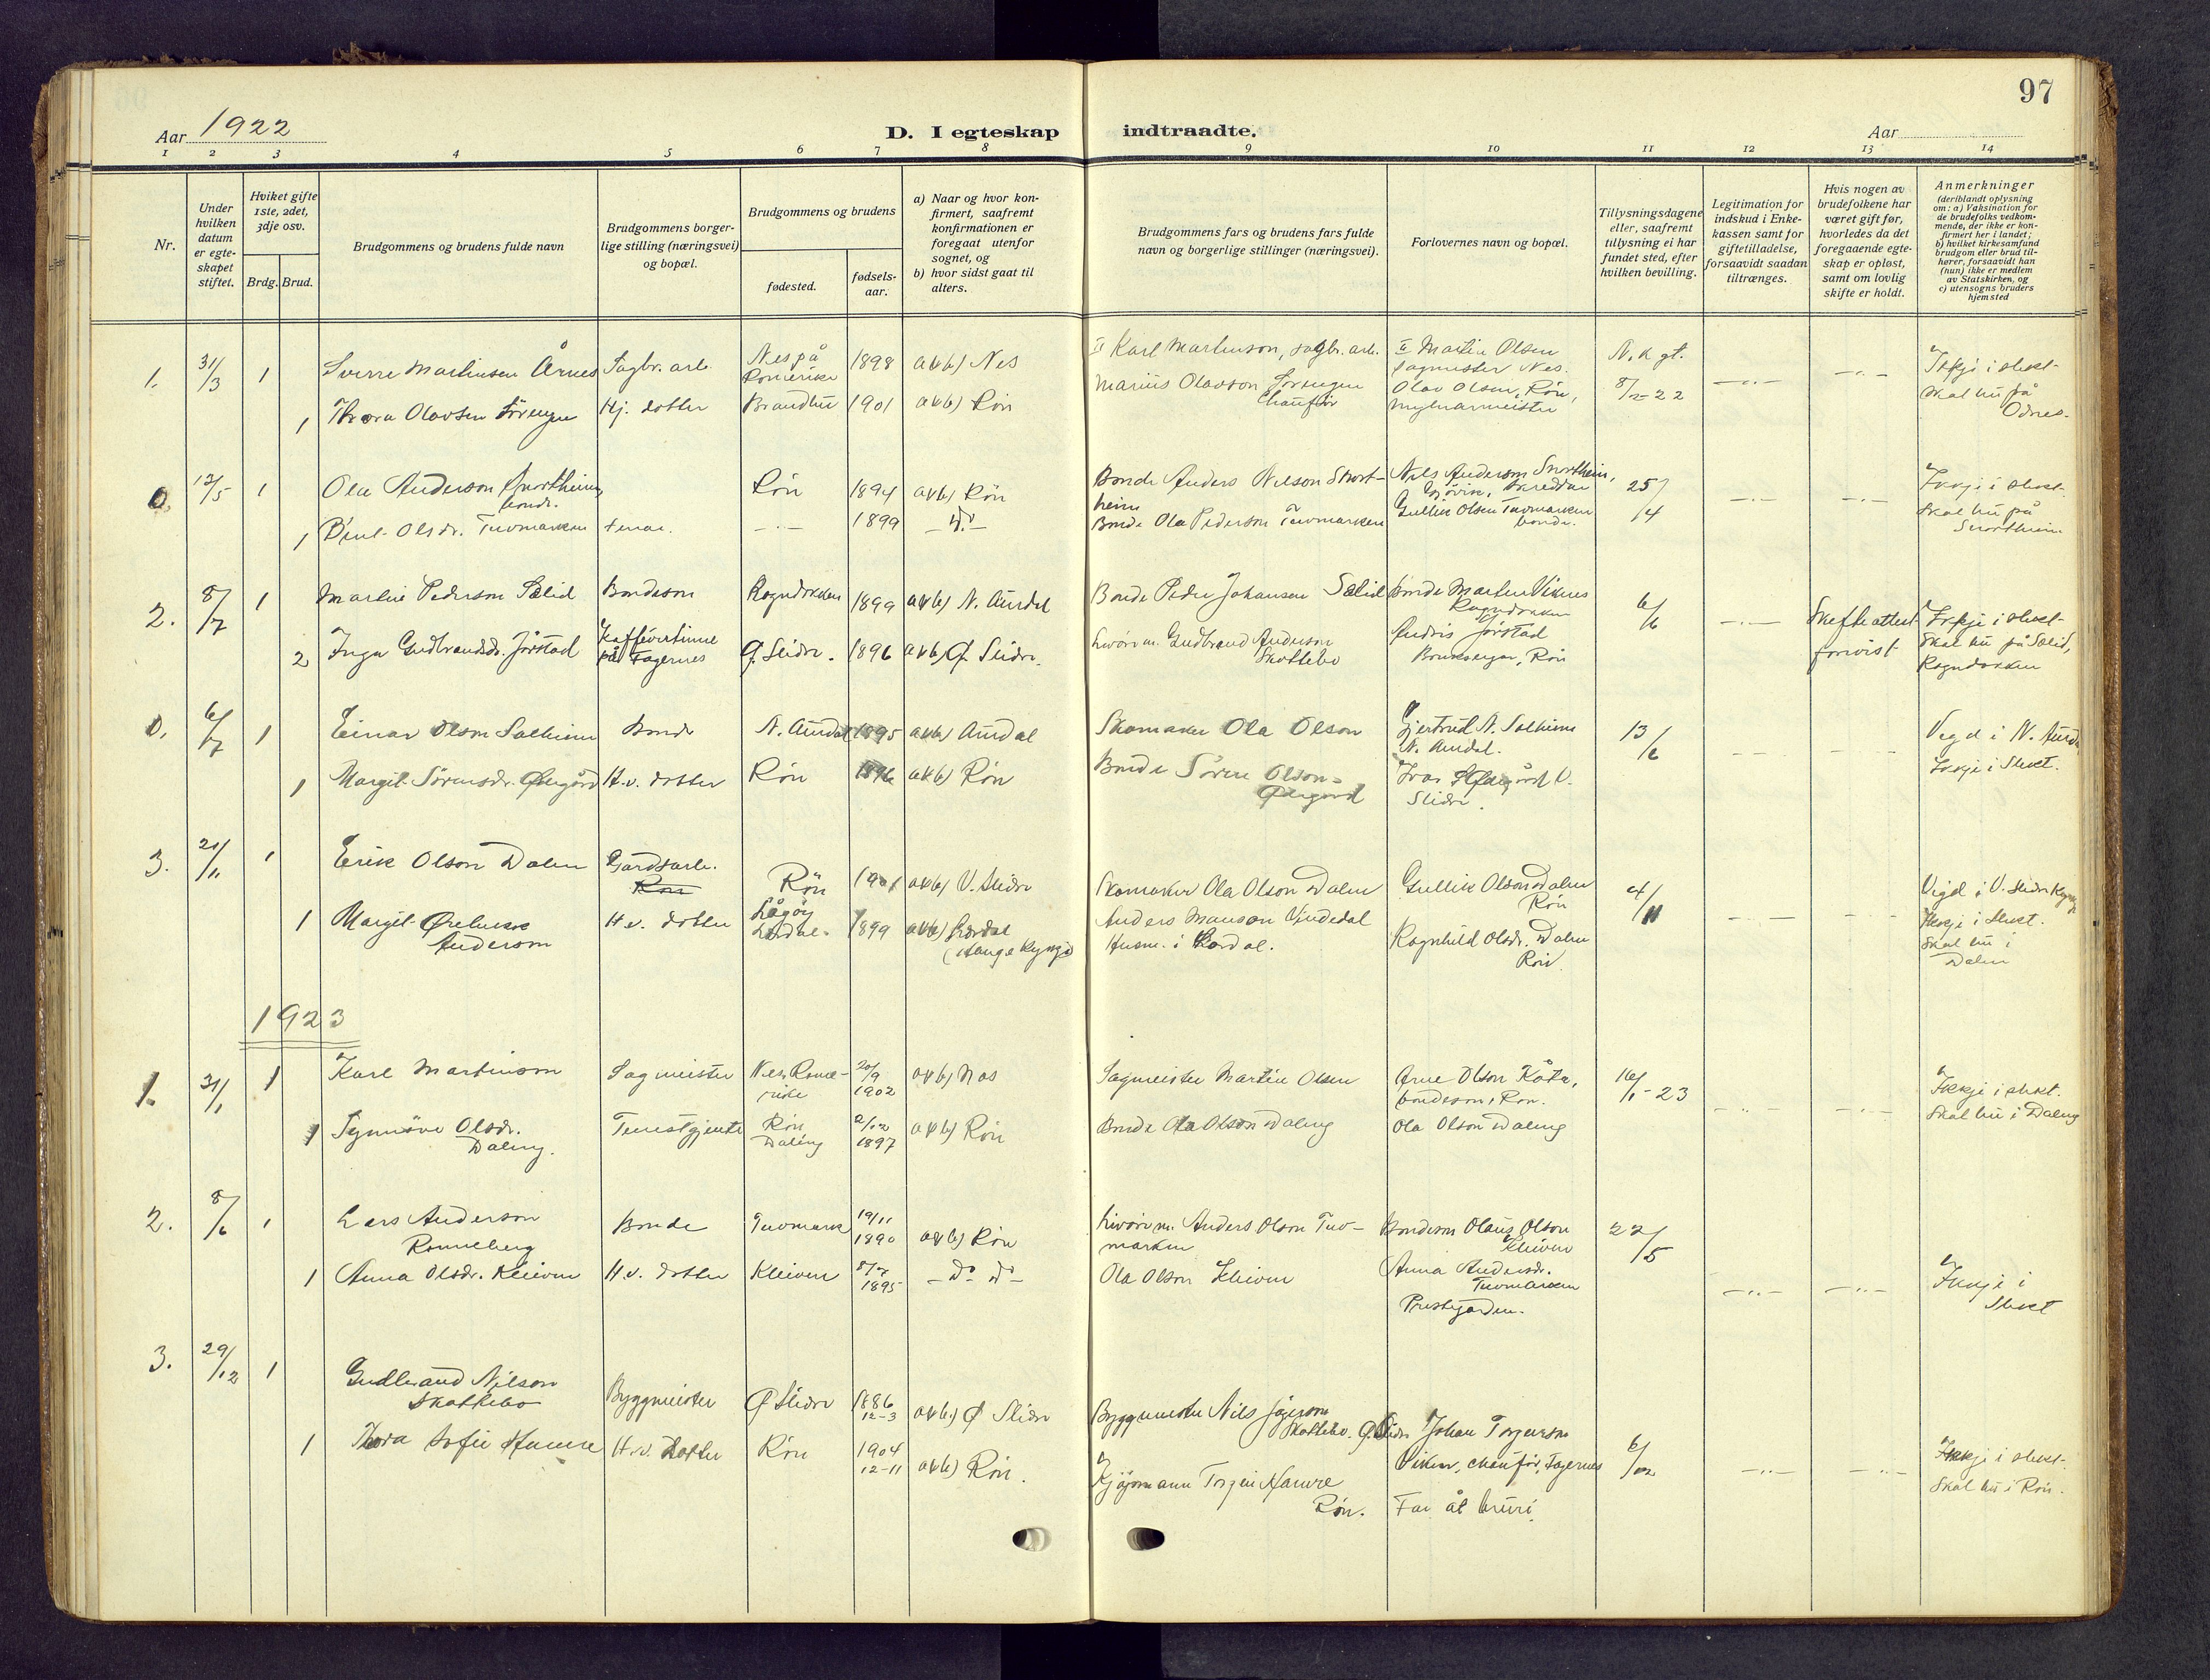 97
Aar 1922
D. I egteskap indtraadte.
Aar
1 2 3 4 5 6 7 8 9 10 11 12 13 14
Nr.
Under hvilken datum er egteskapet stiftet.
Hviket gifte 1ste, 2det, 3dje osv.
Brdg. Brud.
Brudgommens og brudens fulde navn
Brudgommens borgerlige stilling (næringsvei) og bopæl.
Brudgommens og brudens
fødested.
fødselsaar.
a) Naar og hvor konfirmert, saafremt konfirmationen er foregaat utenfor sognet, og
b) hvor sidst gaat til alters.
Brudgommens fars og brudens fars fulde navn og borgerlige stillinger (næringsvei).
Forlovernes navn og bopæl.
Tillysningsdagene eller, saafremt tillysning ei har fundet sted, efter hvilken bevilling.
Legitimation for indskud i Enkekassen samt for giftetilladelse, forsaavidt saadan tiltrænges.
Hvis nogen av brudefolkene har været gift før, hvorledes da det foregaaende egteskap er opløst, samt om lovlig skifte er holdt.
Anmerkninger
(deriblandt oplysning om: a) Vaksination for de brudefolks vedkommende, der ikke er konfirmert her i landet; b) hvilket kirkesamfund brudgom eller brud tilhører, forsaavidt han (hun) ikke er medlem av Statskirken, og c) utensogns bruders hjemsted
1. 31/3 1 Sverre Martinsen Årnes Sagbr. arb. Nes på Romerike 1898 a&b) Nes Karl Martinson, sagbr. arb. Martin Olsen sagmeister Nes. N. k. gt.
1 Thora Olavsen Sörengen Hj. dotter Brandbu 1901 a&b) Røn Marius Olavson Sørengen Chaufför Olav Olsen, Røn, mylnarmeister 8/2-22 Ikkje i slekt. Skal bu på Odnes.
0. 12/5 1 Ola Anderson Snortheim bonde. Røn 1894 a&b) Røn Bonde Anders Nilson Snortheim Nils Anderson Snortheim, Gjövik, skreddar 25/4 Ikkje i slekt. Skal bu på Snortheim
1 Berit Olsdr. Tuvmarken tenar. 1899 Bonde Ola Pederson Tuvmarken Gullik Olsen Tuvmarken bonde.
2. 8/7 1 Martin Pederson Sælid Bondeson Rogndokken 1899 a&b) N. Aurdal Bonde Peder Johansen Sælid Bonde Marten Viknes Rogndokken 6/6 Skifteattest forvist Ikkje i slekt. Skal bu på Sælid, Rogndokken
2 Inga Gudbrandsdr. Jørstad Kaffévertinne på Fagernes Ø. Slidre. 1896 a&b) Ø. Slidre. Livöre m. Gudbrand Anderson Skattebo Andris Jørstad Brukseigar, Røn
0. 6/7 1 Einar Olson Solheim Bonde N. Aurdal 1895 a&b) Aurdal Skomaker Ola Olson Gjertrud N. Solheim N. Aurdal. 13/6 Vigd i N. Aurdal
1 Margit Sörensdr. Øvrgård H.v. dotter Røn 1896 a&b) Røn Bonde Sören Olson Ivar V. Slidre. Ikkje i Slekt.
3. 21/11 1 Erik Olson Dalen Gardsarb. Røn 1901 a&b) V. Slidre Skomaker Ola Olson Dalen Gullik Olson Dalen Røn 4/11 Vigd i V. Slidre Kyrkje Ikkje i Slekt. Skal bu i Dalen
1 Margit Anderson H.v. dotter Lærdal. 1899 a&b) Lærdal (Hauge Kyrkje) Anders Manson Vindedal Husm. i Lærdal. Ragnhild Olsdr. Dalen Røn
1923
1. 21/1 1 Karl Martinson Sagmeister Nes, Romerike 20/9 1902 a&b) Nes Sagmeister Martin Olsen Arne Olson Köta, bondeson, Røn. 16/1-23 Ikkje i slekt. Skal bu i Daleng
1 Synnöve Olsdr. Daleng. Tenestgjente Røn Daleng 2/12 1897 a&b) Røn Bonde Ola Olson Daleng Ola Olson Daleng
2. 8/6 1 Lars Anderson Ronneberg Bonde Tuvmark 19/11 1890 a&b) Røn Livöre m. Anders Olson Tuvmarken Bondeson Olaus Olson Kleiven 22/5
1 Anna Olsdr. Kleiven H.v. dotter Kleiven 8/7 1895 Ola Olson Kleiven Anna Andersdr. Tuvmarken Prestgarden. Ikkje i Slekt
3. 29/12 1 Gudbrand Nilson Skattebo Byggmeister Ø Slidre 1886 12-3 a&b) Ø Slidre Byggmeister Nils Jögerson Skattebo. Ø. Slidre Johan Torgerson Viken, chauför, Fagernes 6/12 Ikkje i slekt. Skal bu i Røn.
1 Thora Sofie Hamre H.v. dotter Røn 1904 12-11 a&b) Røn. Kjöpmann Torgeir Hamre Røn. Far åt bruri.